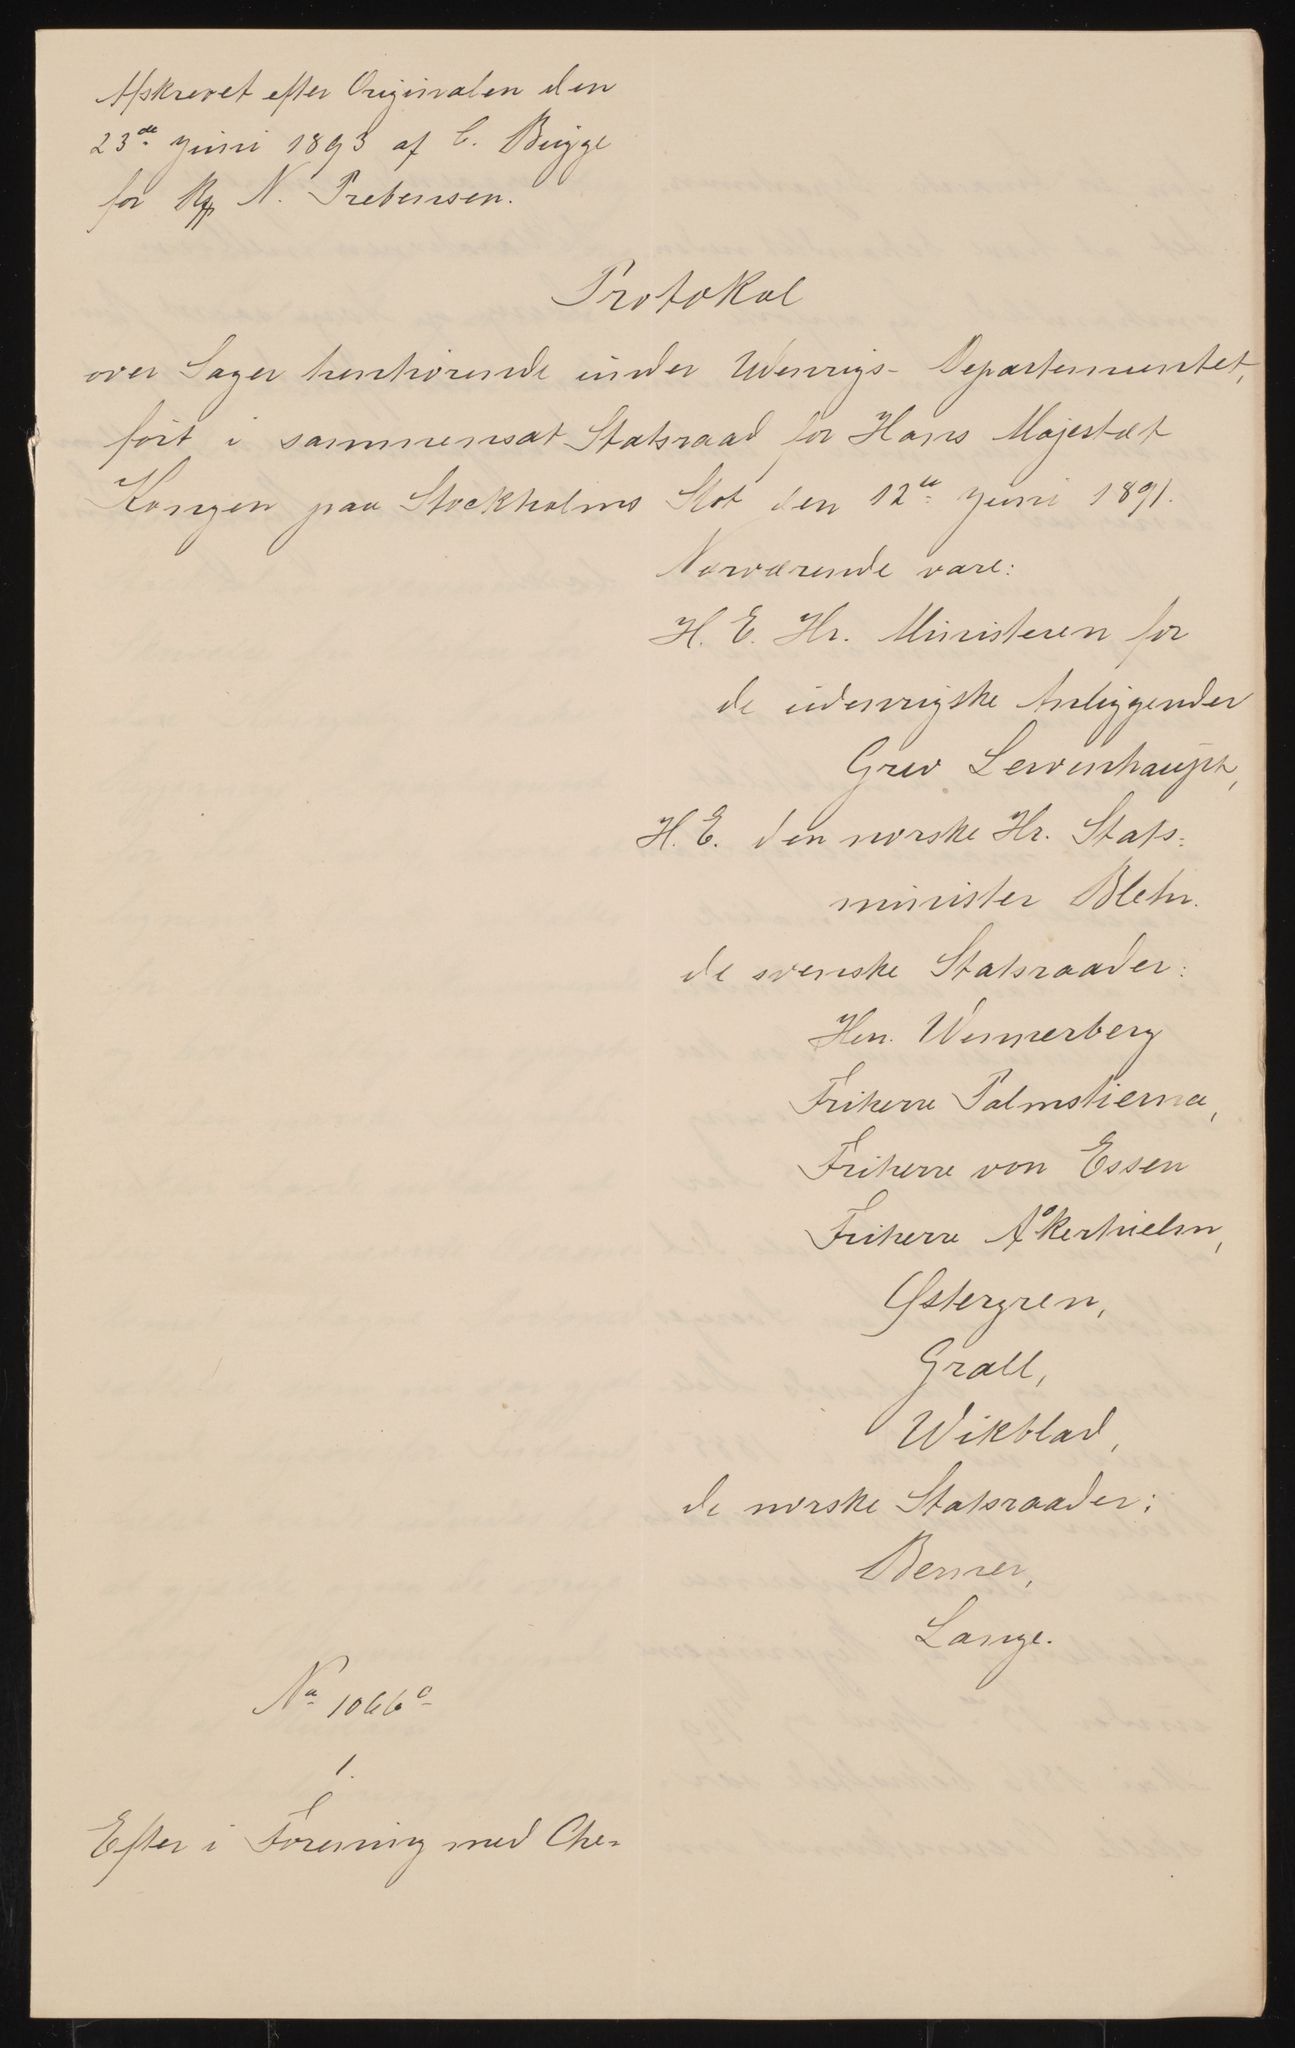 Afskrevet efter Originalen den
23de Juni 1893 af C. Bugge
for N. Prebensen.
Protokol
over Sager henhørende under Udenrigs-Departementet,
ført i sammensat Statsraad for Hans Majestæt
Kongen paa Stockholms Slot den 12te Juni 1891.
Nærværende vare:
H. E. Hr. Ministeren for
de udenrigske Anliggender
Grev Lewenhaupt,
H. E. den norske Hr. Stats-
minister Blehr.
de svenske Statsraader:
Hrr. Wennerberg
Friherre Palmstierna,
Friherre von Essen
Friherre Åkerhielm,
Østergren,
Groll,
Wikblad,
de norske Statsraader:
Berner,
Lange.
No 1066c
1.
Efter i Forening med Che-